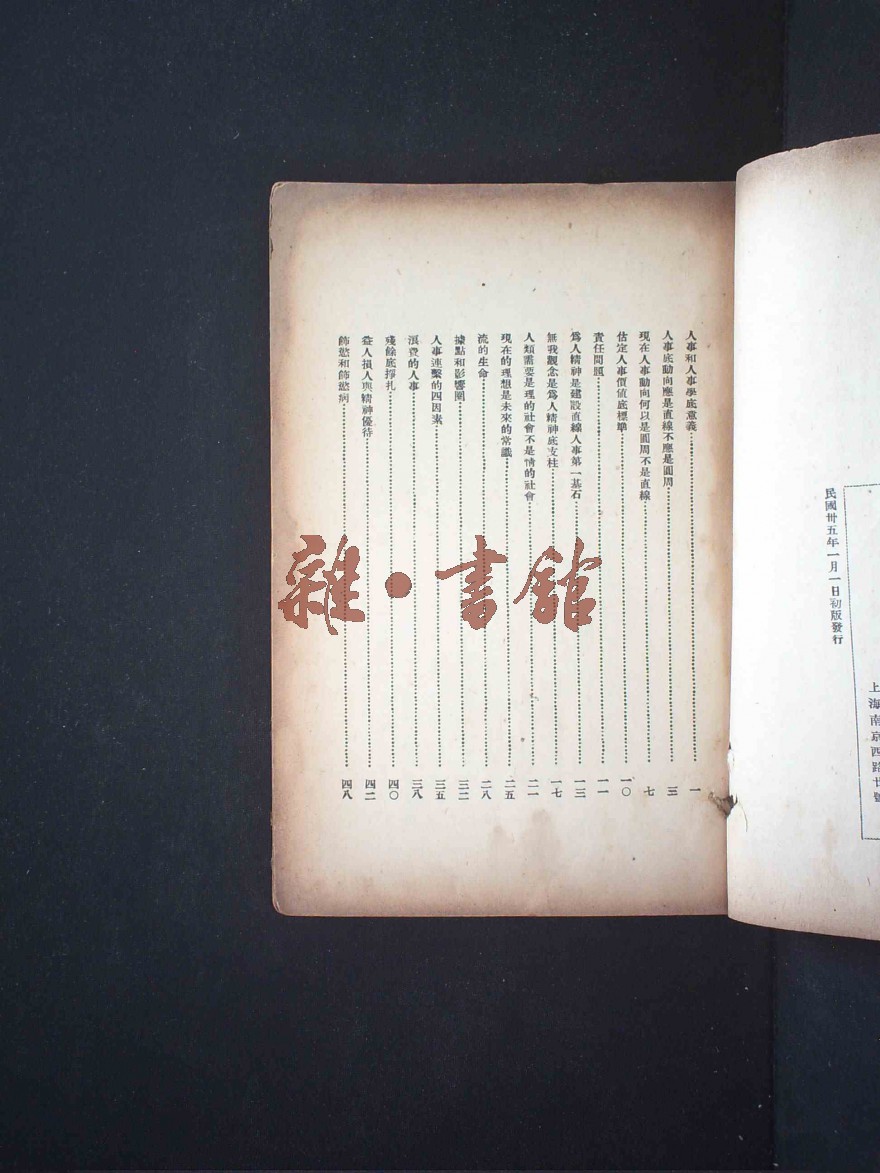 民國卅五年一月一日初版發行
上海南京西路廿號
人事和人事學底意義 一
人事底動向應是直線不應是圓周 三
現在人事動向何以是圓周不是直線 七
估定人事價值底標準 一〇
責任問題 一一
爲人精神是建設直線人事第一基石 一三
無我觀念是爲人精神底支柱 一七
人類需要是理的社會不是情的社會 二一
現在的理想是未來的常識 二五
流的生命 二八
據點和影響圈 三二
人事連繫的四因素 三五
浪費的人事 三八
殘餘底掙扎 四〇
益人損人與精神優待 四二
飾慾和飾慾病 四八
雜·書館